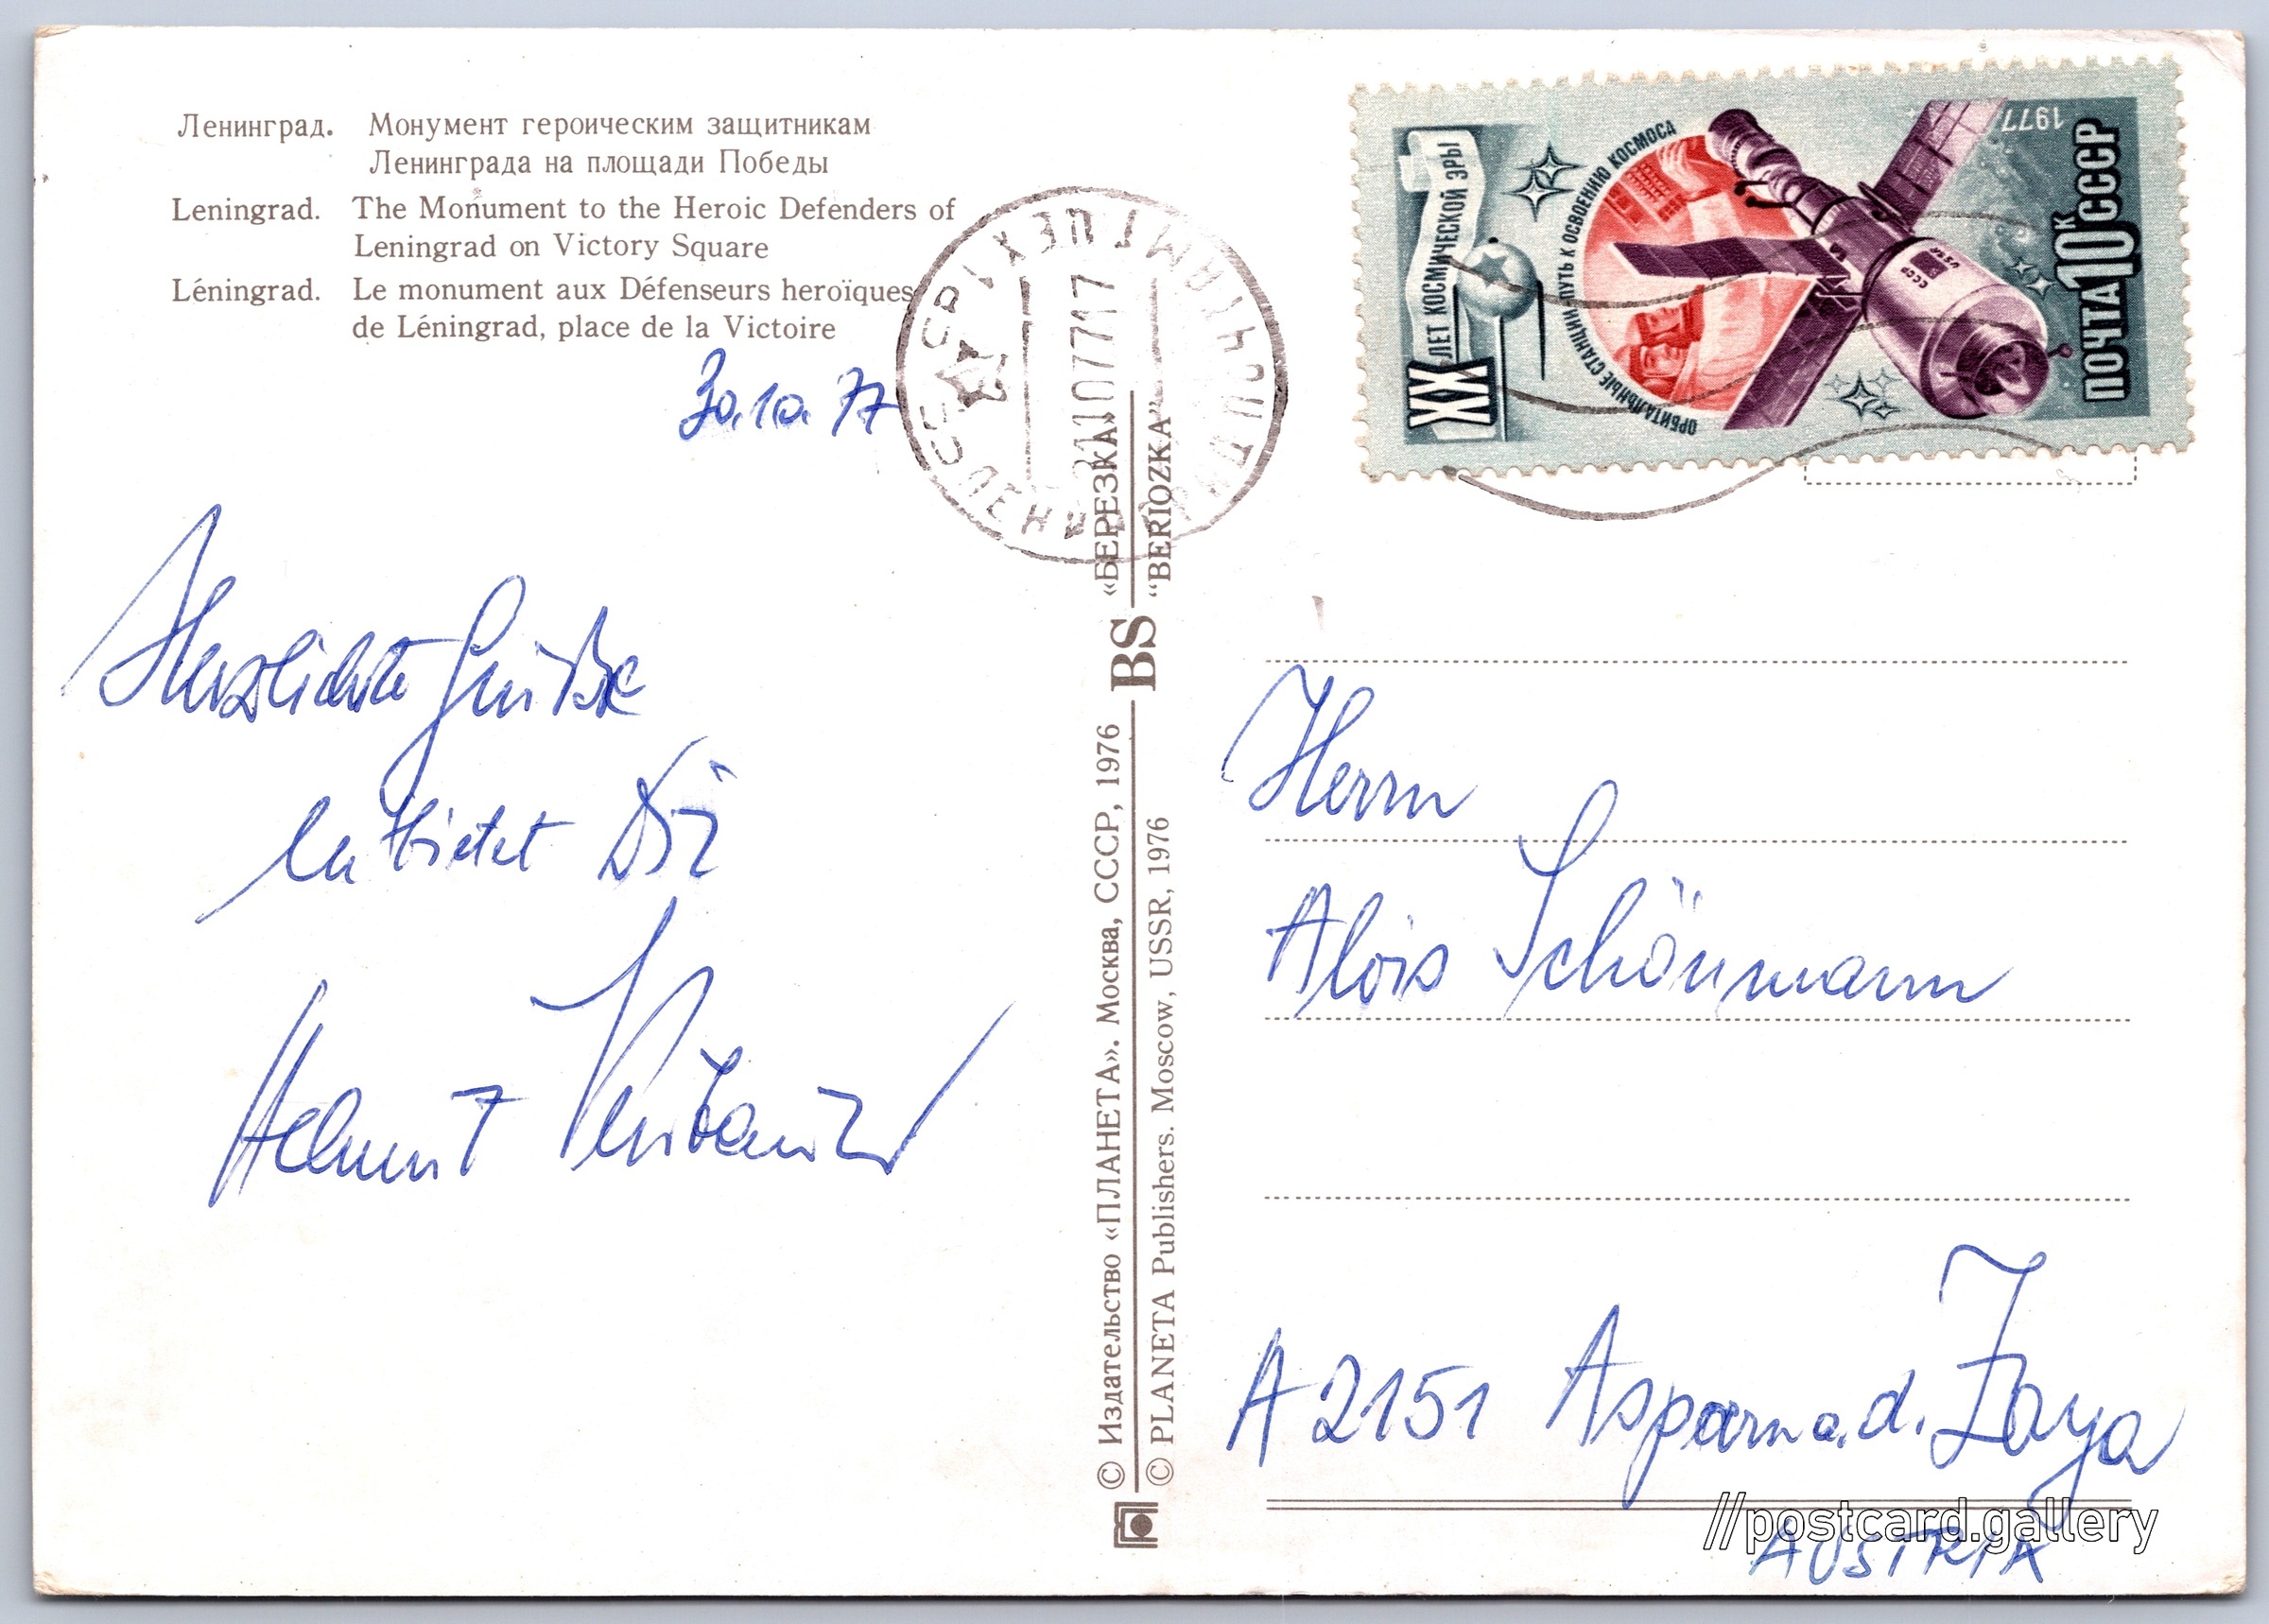 Ленинград. Монумент героическим защитникам
Ленинграда на площади Победы
Leningrad. The Monument to the Heroic Defenders of
Leningrad on Victory Square
Léningrad. Le monument aux Défenseurs heroïques
de Léningrad, place de la Victoire
30.10.77
Herzlichste Grüße
entbietet Dir
Helmut
«БЕРЕЗКА»
"BERIOZKA"
BS
© Издательство «ПЛАНЕТА». Москва, СССР, 1976
© PLANETA Publishers. Moscow, USSR, 1976
31107717
XX ЛЕТ КОСМИЧЕСКОЙ ЭРЫ
ОРБИТАЛЬНЫЕ СТАНЦИИ-ПУТЬ К ОСВОЕНИЮ КОСМОСА
СССР
USSR
1977
ПОЧТА 10К СССР
Herrn
Alois Schönmann
A 2151 Asparn a. d. Zaya
AUSTRIA
//postcard.gallery